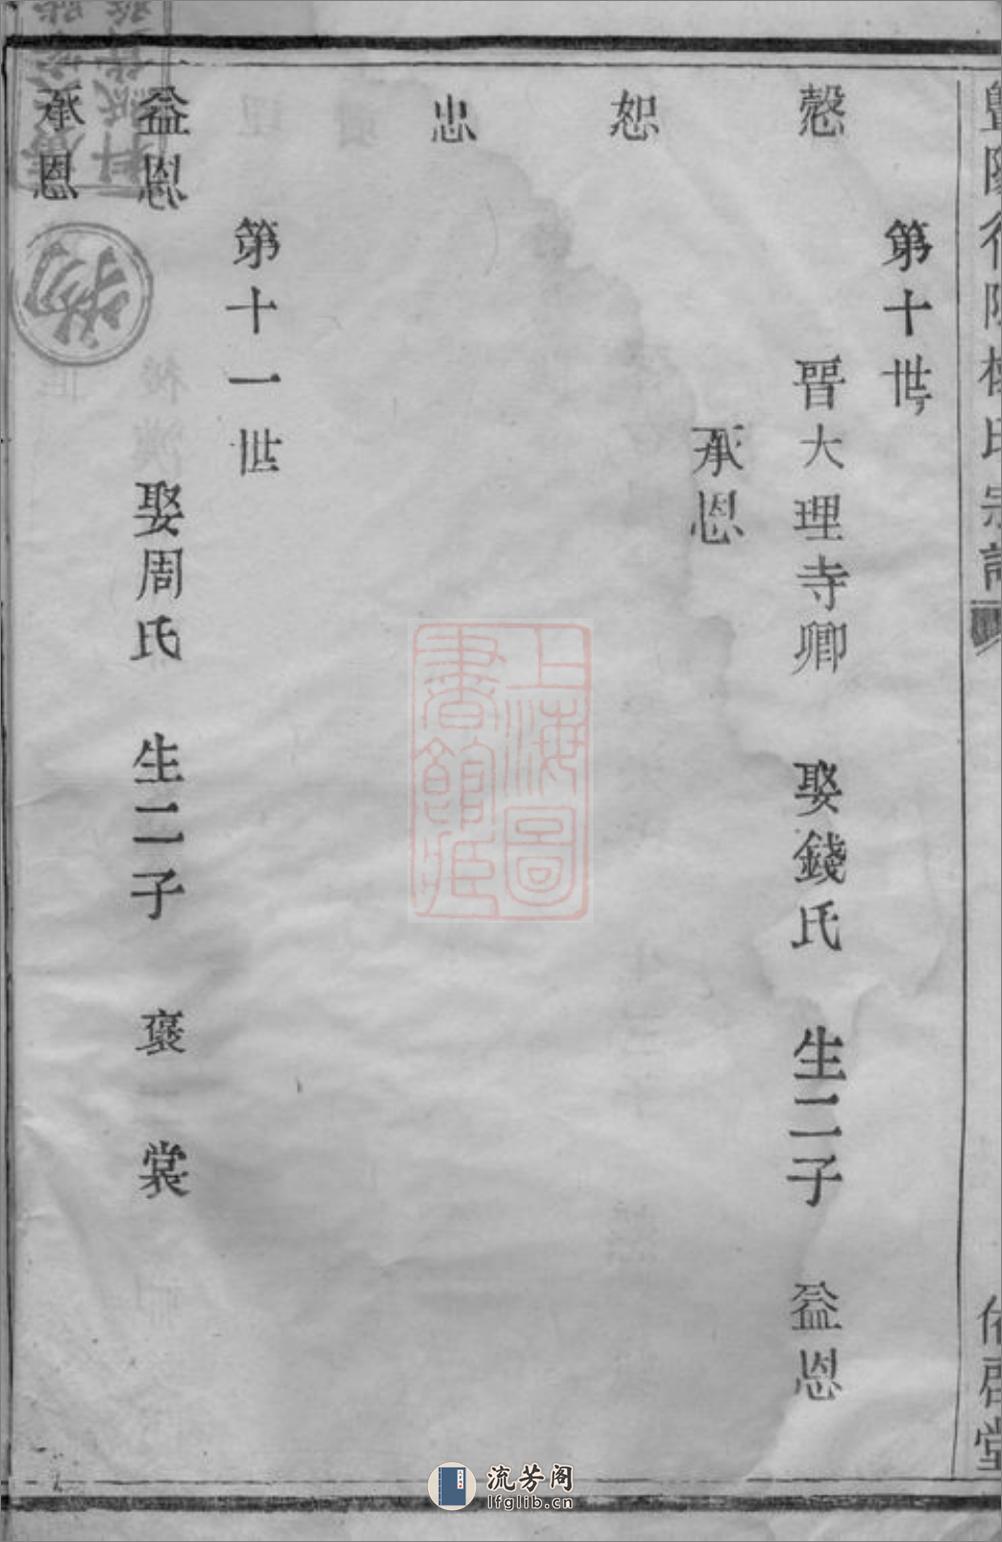 第十世
愨 晉大理寺卿 娶錢氏 生二子 益恩
承恩
恕
忠
第十一世
益恩 娶周氏 生二子 褒 裳
承恩
上海圖
書館藏
流芳阁
lfglib.cn